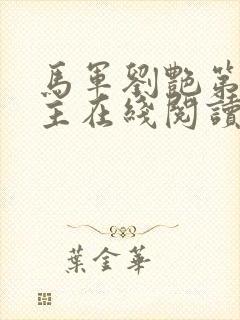 馬軍劉艷第
主在綫閱讀
葉金華